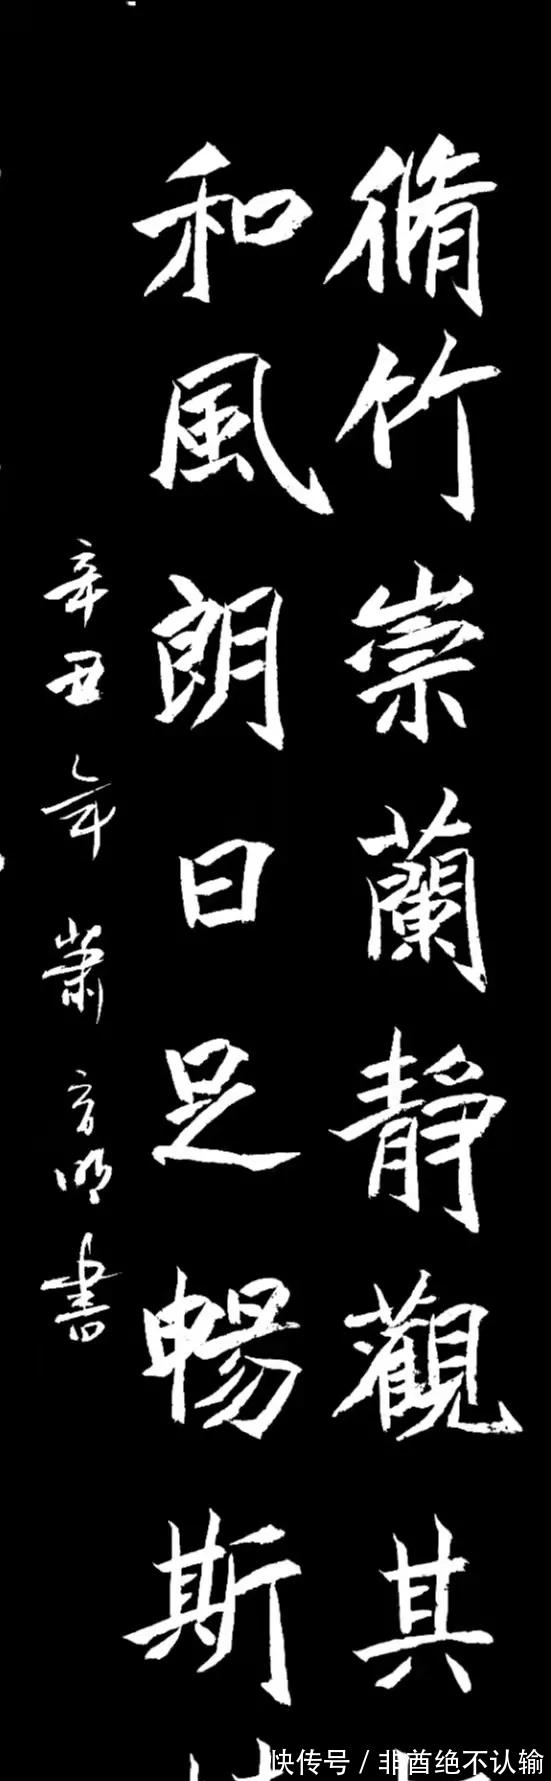 脩竹崇蘭靜觀其
和風朗日足暢斯
辛丑年蕭育明書
快传号 / 非酋绝不认输